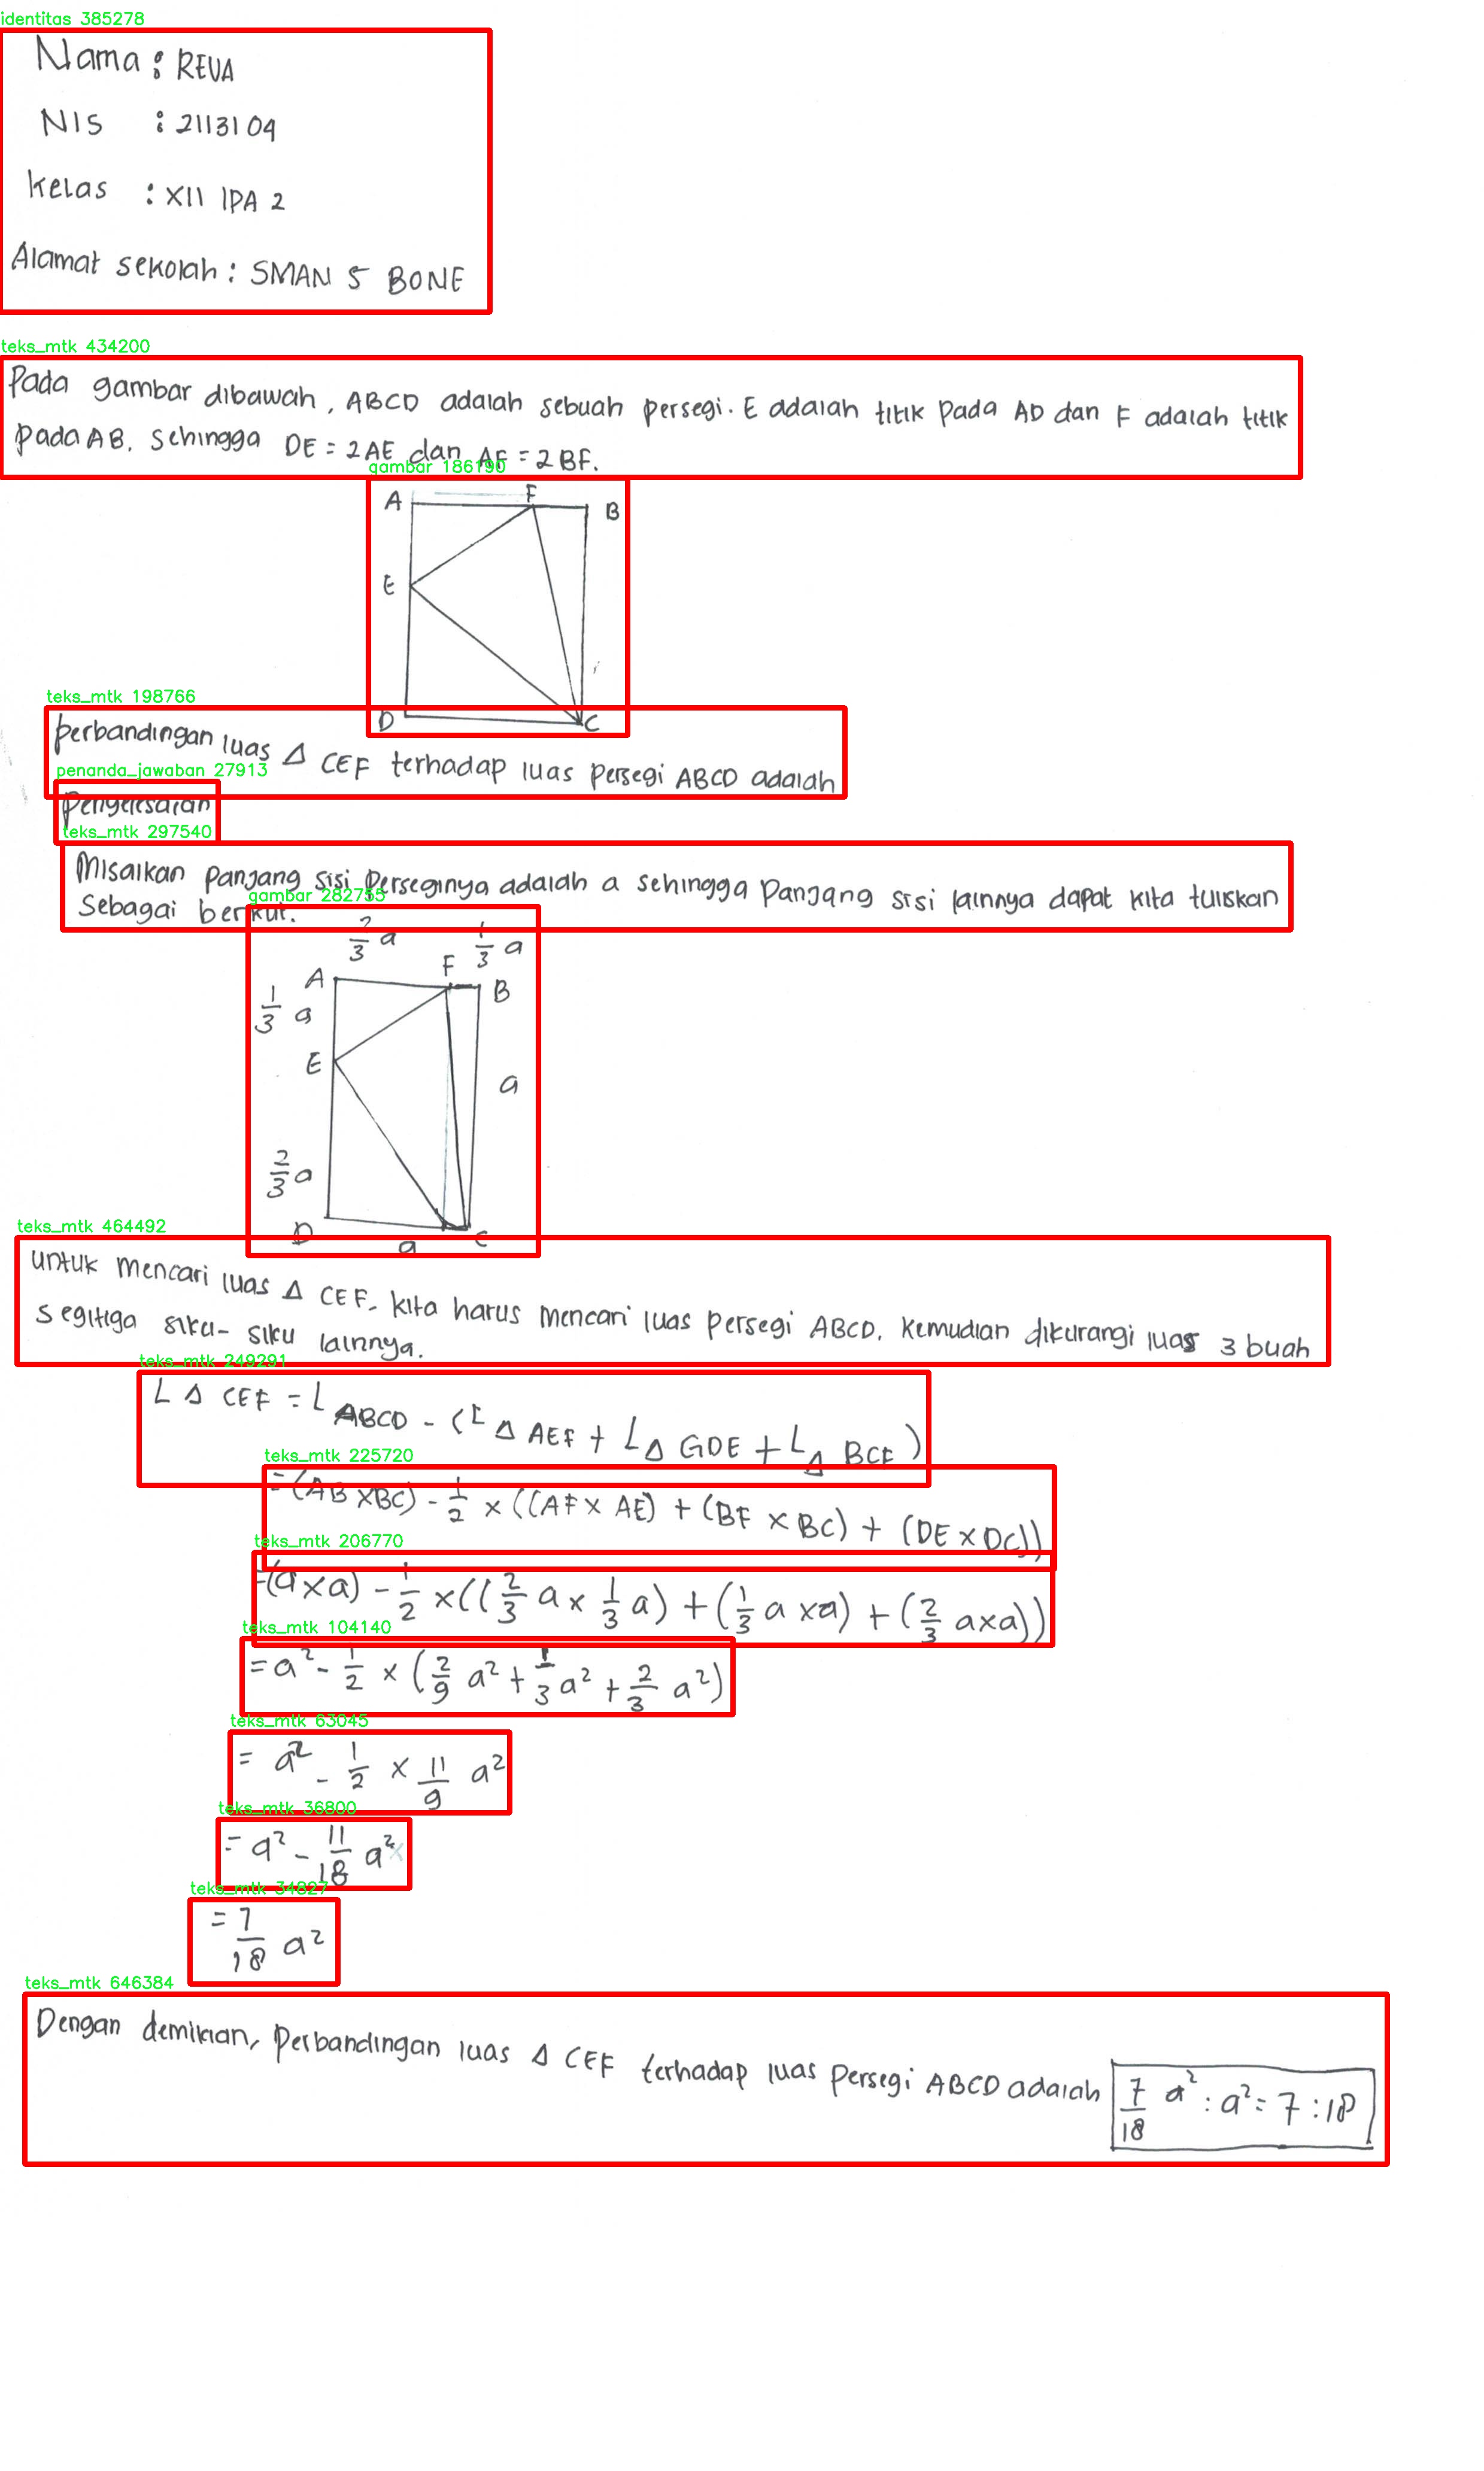 identitas 385278
Nama : REVA
NIS : 2113104
Kelas : XII IPA 2
Alamat sekolah : SMAN 5 BONE
teks_mtk 434200
Pada gambar dibawah, ABCD adalah sebuah persegi. E adalah titik Pada AD dan F adalah titik
pada AB. Sehingga DE = 2AE dan AF = 2BF.
gambar 186190
A F B
E
D C
teks_mtk 198766
perbandingan luas Δ CEF terhadap luas persegi ABCD adalah
penanda_jawaban 27913
penyelesaian
teks_mtk 297540
Misalkan panjang sisi perseginya adalah a sehingga panjang sisi lainnya dapat kita tuliskan
Sebagai berikut.
gambar 282755
2/3 a 1/3 a
A F B
1/3 a
E a
2/3 a
D a C
teks_mtk 464492
untuk mencari luas Δ CEF, kita harus mencari luas persegi ABCD, kemudian dikurangi luas 3 buah
segitiga siku-siku lainnya.
teks_mtk 249291
L Δ CEF = L ABCD - (L Δ AEF + L Δ GDE + L Δ BCF)
teks_mtk 225720
= (AB × BC) - 1/2 × ((AF × AE) + (BF × BC) + (DE × DC))
teks_mtk 206770
= (a × a) - 1/2 × ((2/3 a × 1/3 a) + (1/3 a × a) + (2/3 a × a))
teks_mtk 104140
= a² - 1/2 × (2/9 a² + 1/3 a² + 2/3 a²)
teks_mtk 63045
= a² - 1/2 × 11/9 a²
teks_mtk 36800
= a² - 11/18 a²
teks_mtk 34827
= 7/18 a²
teks_mtk 646384
Dengan demikian, perbandingan luas Δ CEF terhadap luas persegi ABCD adalah 7/18 a² : a² = 7 : 18